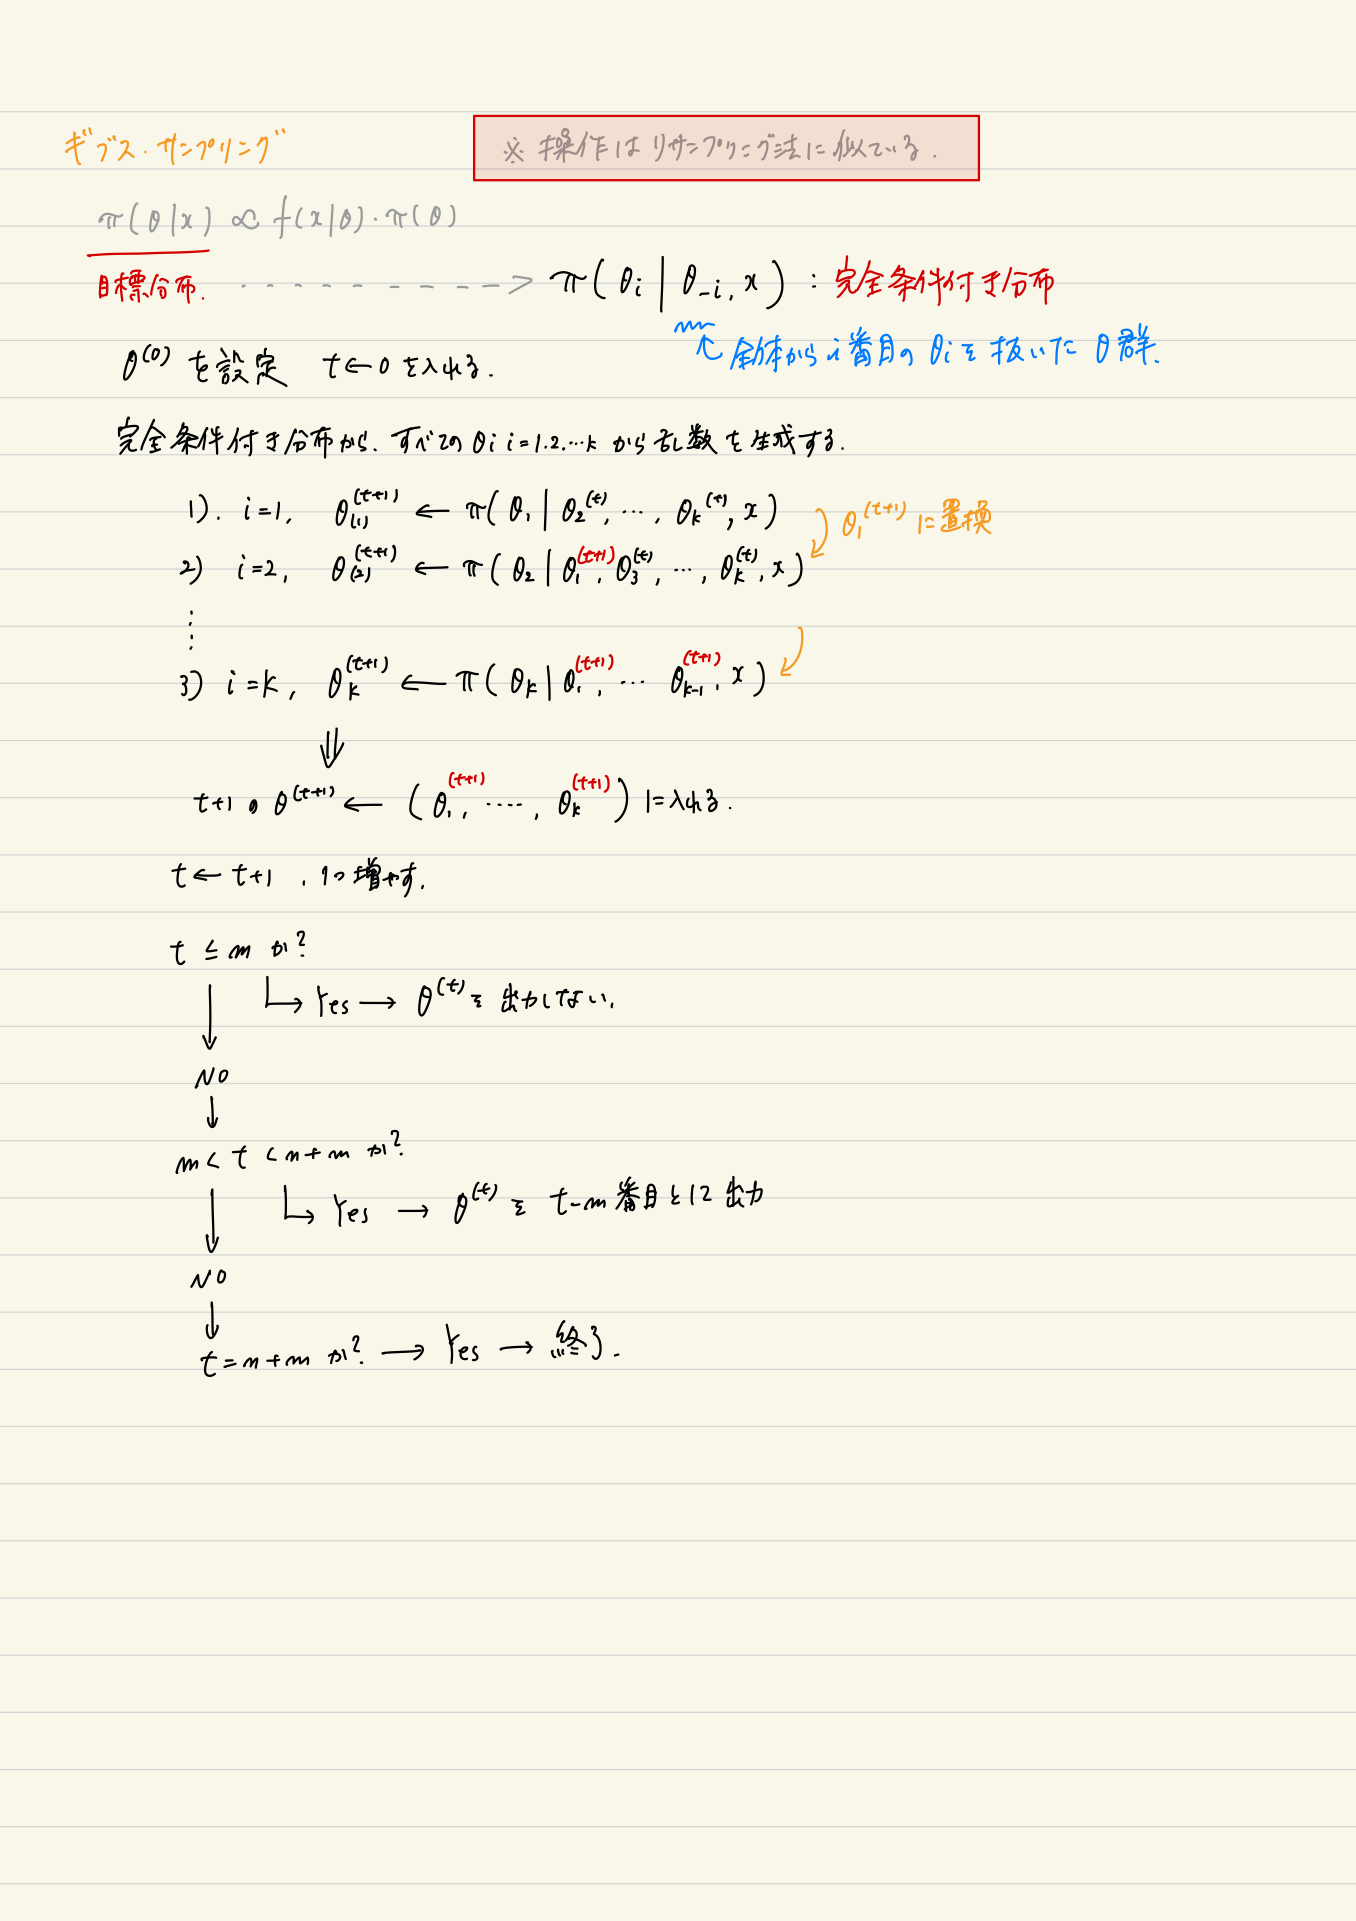 ギブス・サンプリング
※ 操作はリサンプリング法に似ている.
π(θ|x) ∝ f(x|θ)・π(θ)
目標分布. ---------> π(θi | θ-i, x) : 完全条件付き分布
全体から i番目の θiを 抜いた θ群.
θ^(0) を設定 t←0 を入れる.
完全条件付き分布から. すべての θi i=1.2.…k から乱数を生成する.
1). i=1, θ(1)^(t+1) ← π(θ1 | θ2^(t), …, θk^(t), x)
θ1^(t+1) に置換
2) i=2, θ(2)^(t+1) ← π(θ2 | θ1^(t+1), θ3^(t), …, θk^(t), x)
⋮
3) i=k, θk^(t+1) ← π(θk | θ1^(t+1), … θk-1^(t+1), x)
⇓
t+1の θ^(t+1) ← (θ1^(t+1), ‥‥, θk^(t+1)) に入れる.
t ← t+1 , 1つ増やす.
t ≦ m か?
→ Yes → θ^(t)を 出力しない.
↓
NO
↓
m < t < n+m か?
→ Yes → θ^(t)を t-m番目として出力
↓
NO
↓
t=n+m か? → Yes → 終了.